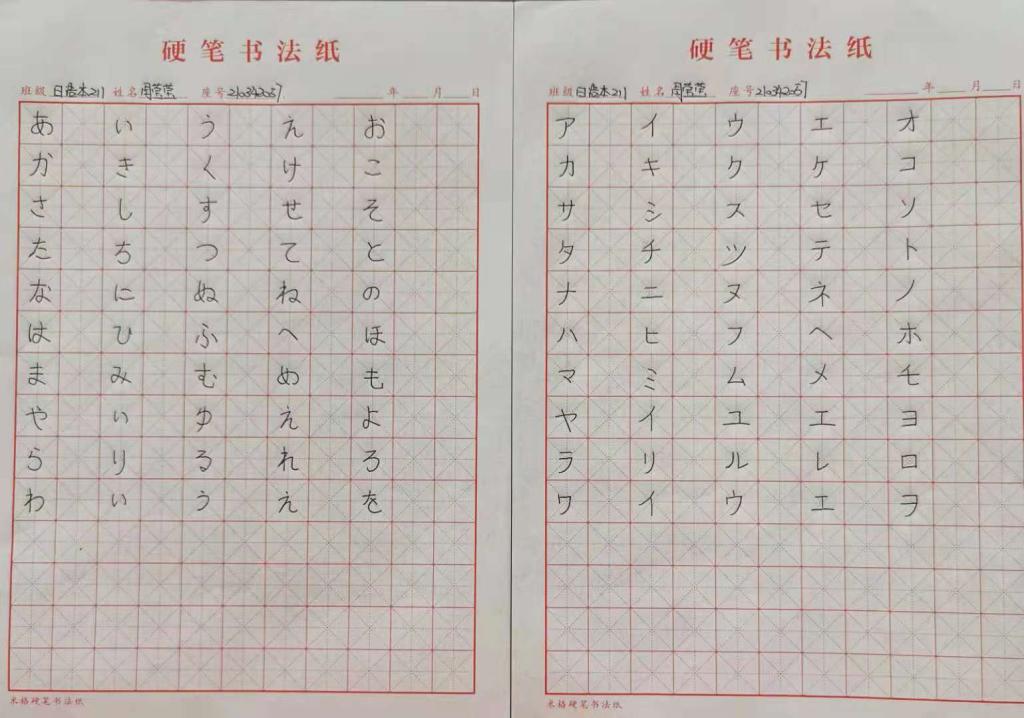 硬笔书法纸
班级 日语本211 姓名 周莹莹 座号 210342057 年 月 日
あ い う え お
か き く け こ
さ し す せ そ
た ち つ て と
な に ぬ ね の
は ひ ふ へ ほ
ま み む め も
や い ゆ え よ
ら り る れ ろ
わ い う え を
米格硬笔书法纸
硬笔书法纸
班级 日语本211 姓名 周莹莹 座号 210342057 年 月 日
ア イ ウ エ オ
カ キ ク ケ コ
サ シ ス セ ソ
タ チ ツ テ ト
ナ ニ ヌ ネ ノ
ハ ヒ フ ヘ ホ
マ ミ ム メ モ
ヤ イ ユ エ ヨ
ラ リ ル レ ロ
ワ イ ウ エ ヲ
米格硬笔书法纸